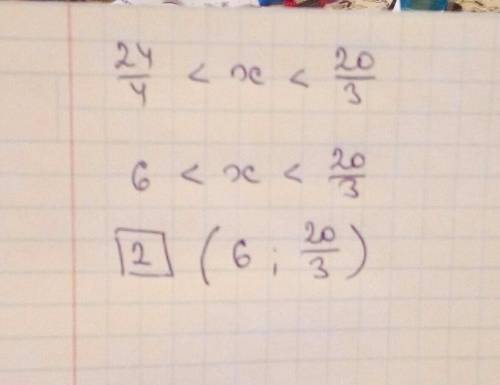 24/4 < x < 20/3
6 < x < 20/3
2 (6 ; 20/3)